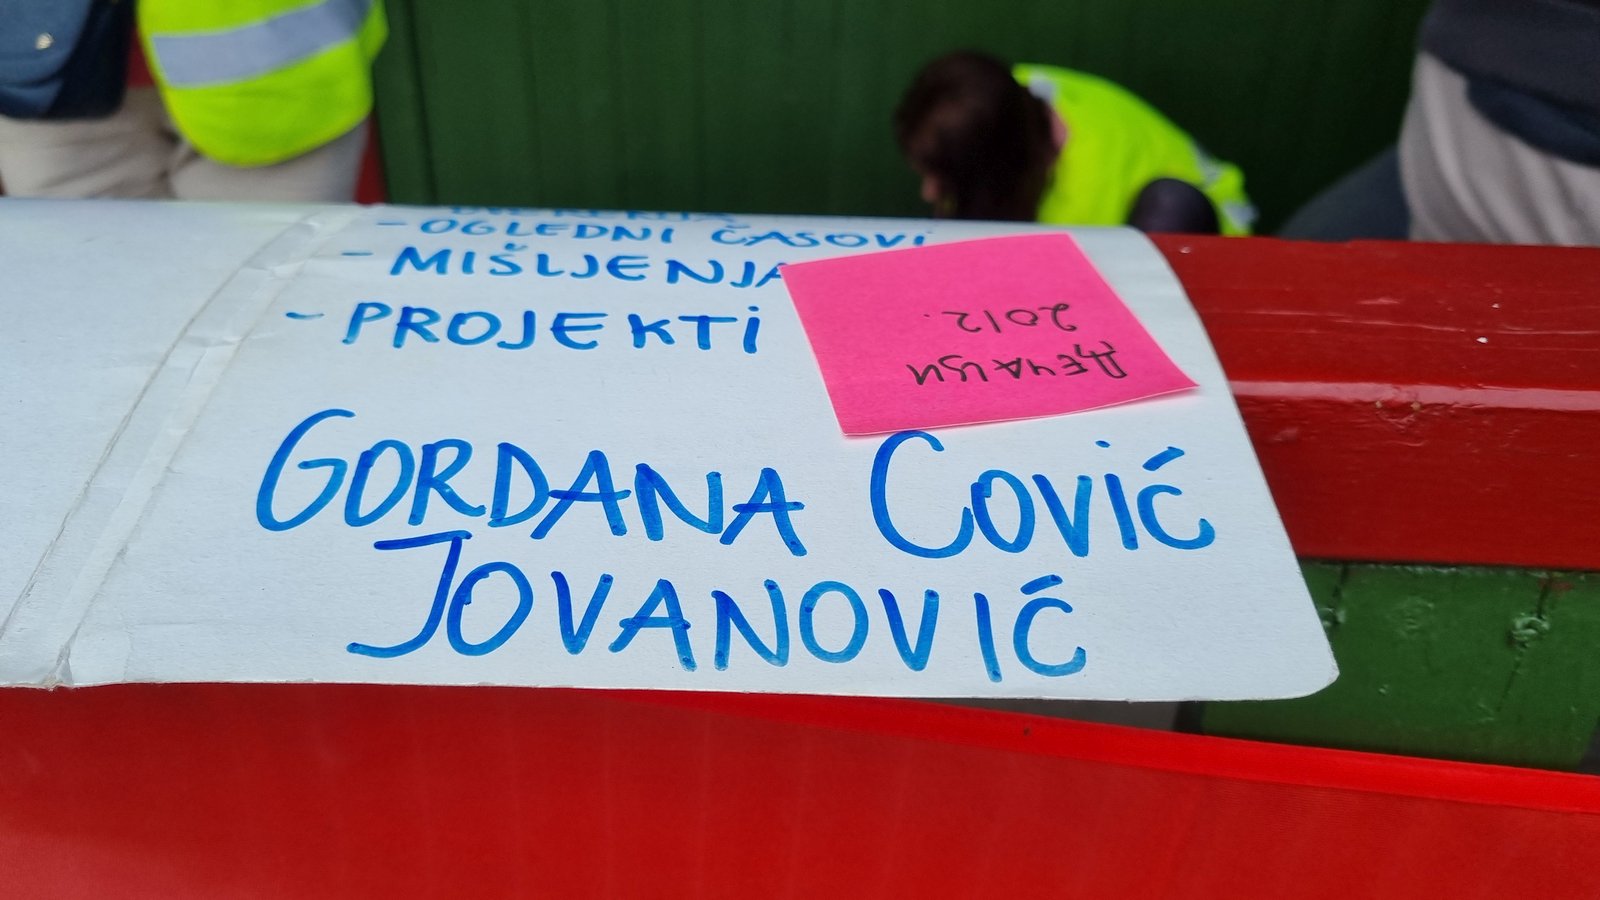 - OGLEDNI ČASOVI
- MIŠLJENJA
- PROJEKTI
GORDANA COVIĆ
JOVANOVIĆ
Дечаци
2012.